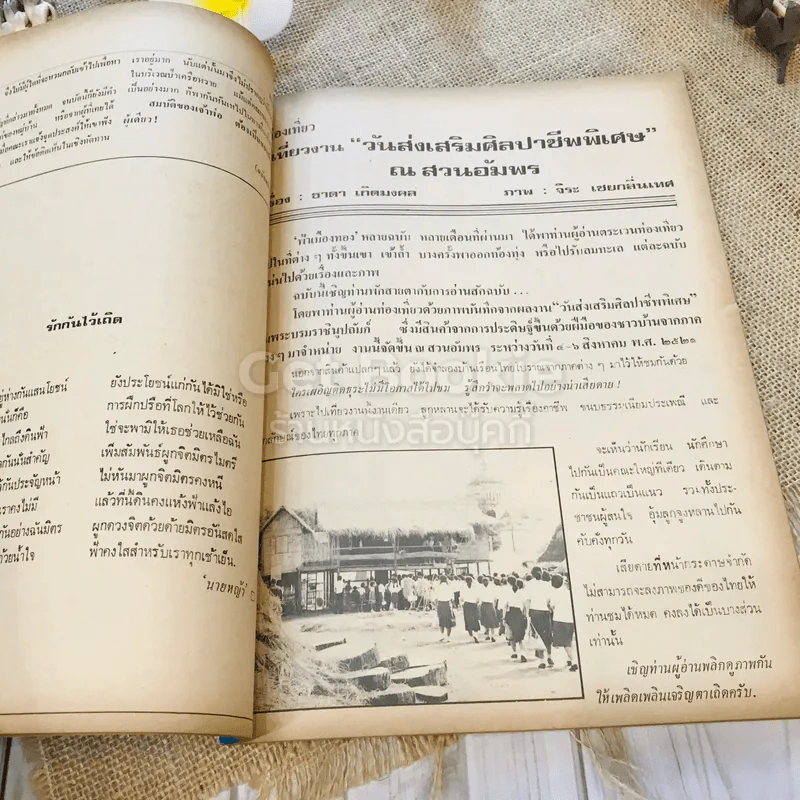 ซึ่งไม่มีผู้ใดที่จะหวนกลับเข้าไปเพื่อหา
เราอยู่มาก
ในบริเวณป่าเครือหวาย
เป็นอย่างมาก
สมบัติของเจ้าพ่อ
ผู้เดียว!
และให้ข้อคิดเห็นในเชิงทัดทาน
รักกันไว้เถิด
ยังประโยชน์แก่กันได้มิใช่หรือ
การฝึกปรือที่โลกให้ไว้ช่วยกัน
ใช่จะพามิให้เธอช่วยเหลือฉัน
เพิ่มสัมพันธ์ผูกจิตมิตรไมตรี
ไม่หันมาผูกจิตมิตรคงหนี
แล้วที่นี้ดินคงแห้งฟ้าแล้งไอ
ผูกดวงจิตด้วยด้ายมิตรอันสดใส
ฟ้าคงใสสำหรับเราทุกเช้าเย็น.
'นายหญ้า'
องเที่ยว
เที่ยวงาน "วันส่งเสริมศิลปาชีพพิเศษ"
ณ สวนอัมพร
รื่อง : ธาดา เกิดมงคล ภาพ : จิระ เชยกลิ่นเทศ
'ฟ้าเมืองทอง' หลายฉบับ หลายเดือนที่ผ่านมา ได้พาท่านผู้อ่านตระเวนท่องเที่ยว
ไปในที่ต่าง ๆ ทั้งขึ้นเขา เข้าถ้ำ บางครั้งพาออกท้องทุ่ง หรือไปรับลมทะเล แต่ละฉบับ
น่นไปด้วยเรื่องและภาพ
ฉบับนี้เชิญท่านพักสายตากับการอ่านสักฉบับ...
โดยพาท่านผู้อ่านท่องเที่ยวด้วยภาพบันทึกจากผลงาน "วันส่งเสริมศิลปาชีพพิเศษ"
นพระบรมราชินูปถัมภ์ ซึ่งมีสินค้าจากการประดิษฐ์ขึ้นด้วยฝีมือของชาวบ้านจากภาค
าง ๆ มาจำหน่าย งานนี้จัดขึ้น ณ สวนอัมพร ระหว่างวันที่ ๔-๖ สิงหาคม พ.ศ. ๒๕๒๑
นอกจากสินค้าแปลกๆ แล้ว ยังได้จำลองบ้านเรือนไทยโบราณจากภาคต่าง ๆ มาไว้ให้ชมกันด้วย
ใครเผอิญติดธุระไม่มีโอกาสได้ไปชม รู้สึกว่าจะพลาดไปอย่างน่าเสียดาย!
เพราะไปเที่ยวงานนี้งานเดียว ลูกหลานจะได้รับความรู้เรื่องอาชีพ ขนบธรรมเนียมประเพณี และ
กลักษณ์ของไทยทุกภาค
จะเห็นว่านักเรียน นักศึกษา
ไปกันเป็นคณะใหญ่ทีเดียว เดินตาม
กันเป็นแถวเป็นแนว รวมทั้งประ-
ชาชนผู้สนใจ อุ้มลูกจูงหลานไปกัน
คับคั่งทุกวัน
เสียดายที่หน้ากระดาษจำกัด
ไม่สามารถจะลงภาพของดีของไทยให้
ท่านชมได้หมด คงลงได้เป็นบางส่วน
เท่านั้น
เชิญท่านผู้อ่านพลิกดูภาพกัน
ให้เพลิดเพลินเจริญตาเถิดครับ.
Get Bookie
ร้านหนังสือบุ๊คกี้